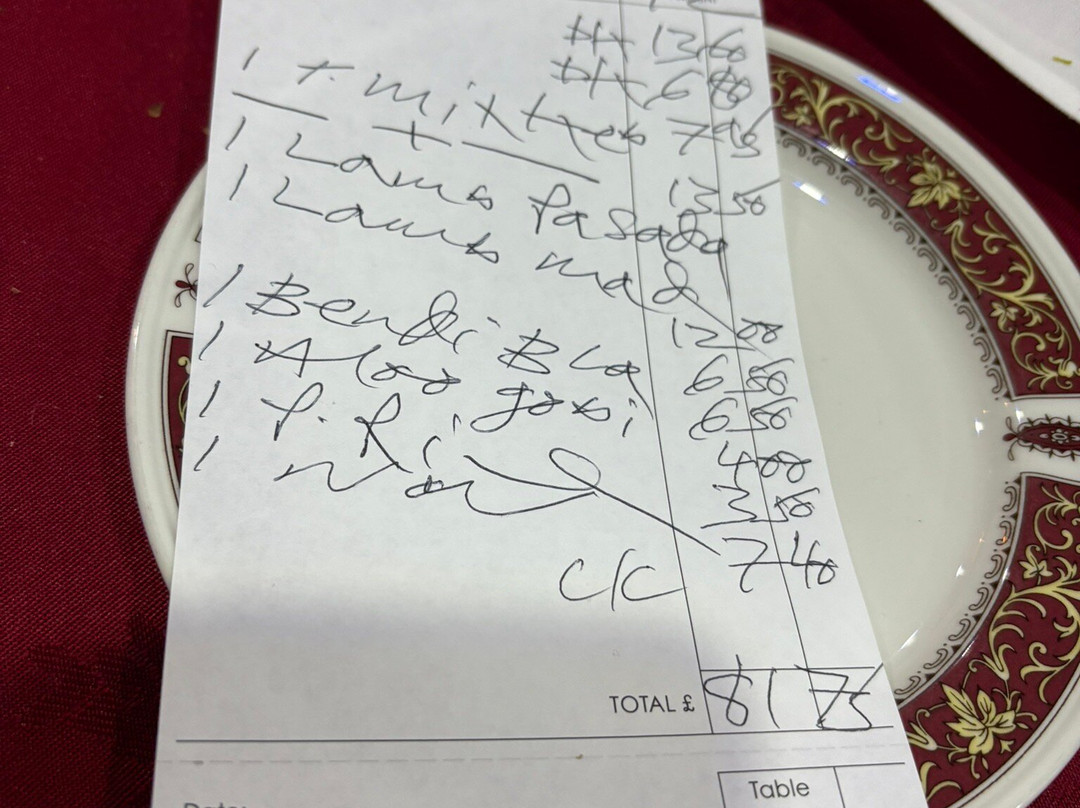 6
1 + mix 7 95
1 Lamb Pasada 13 50
1 Lamb mad 12
1 Bendi Bha 6 50
1 Aloo gobi 6 50
1 P. Ri 4 00
1 Nan 3 50
C/C 7 40
TOTAL £ 81 75
Table